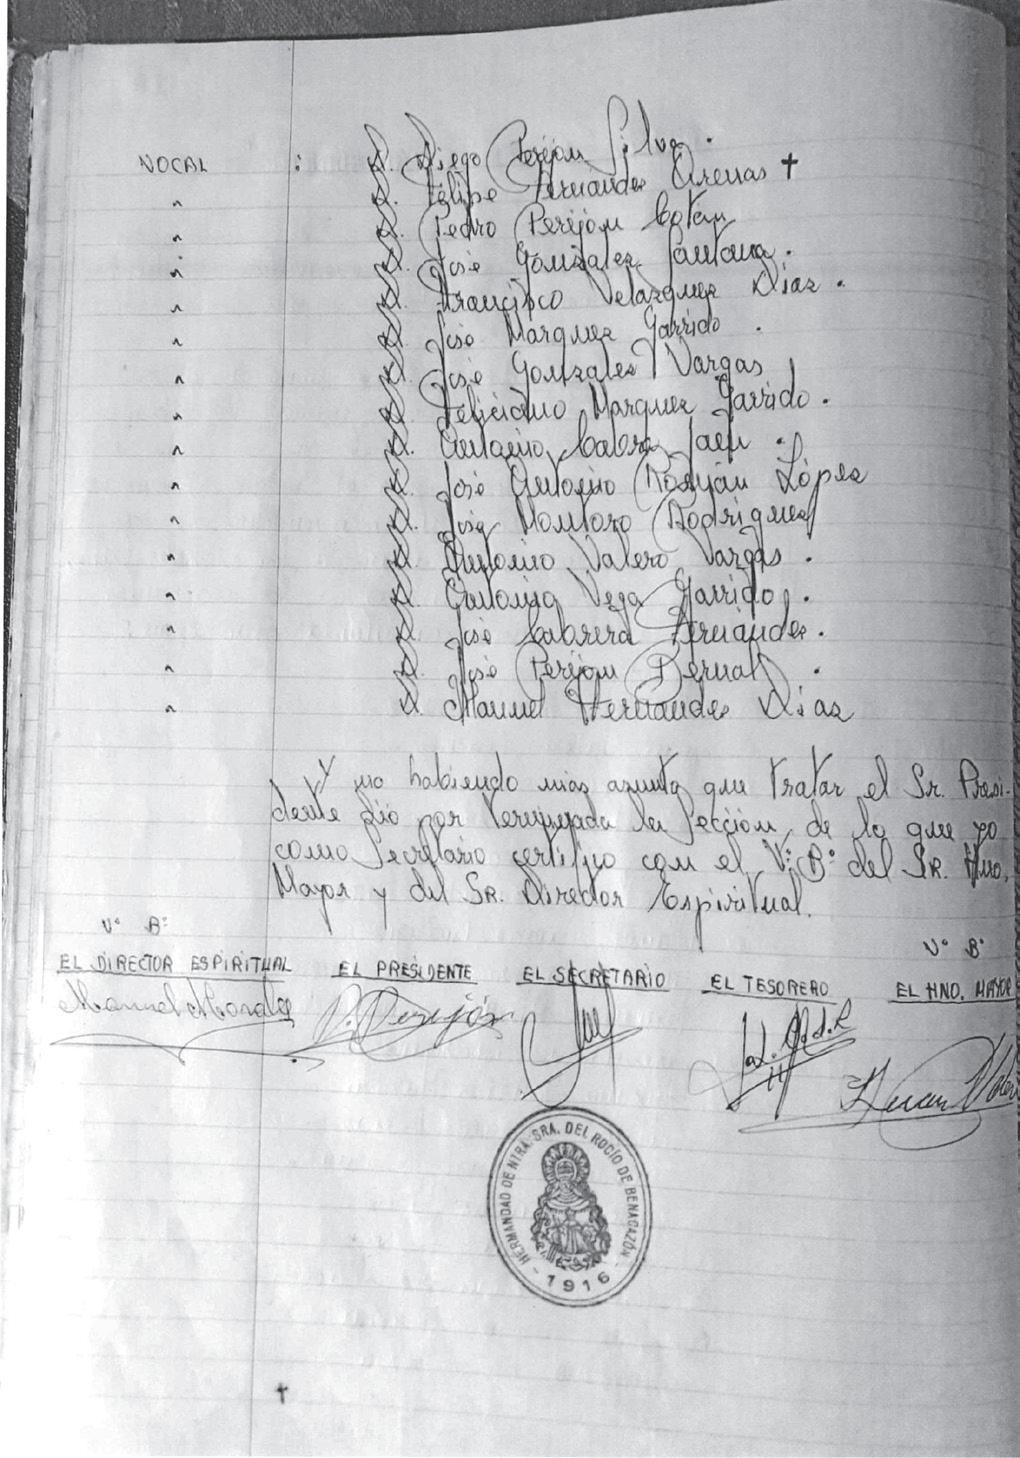 VOCAL : D. Diego Perejon Silva.
" D. Felipe Hernandez Arenas †
" D. Pedro Perejon Cotan
" D. José Gonzalez Santana.
" D. Francisco Velazquez Diaz.
" D. José Marquez Garrido.
" D. José Gonzalez Vargas
" D. Feliciano Marquez Garrido.
" D. Antonio Cabrera Jaen.
" D. José Antonio Perejón López
" D. José Montoro Rodriguez
" D. Antonio Valero Vargas.
" D. Antonio Vega Garrido.
" D. José Cabrera Fernández.
" D. José Perejon Bernal.
" D. Manuel Hernandez Diaz
Y no habiendo más asunto que tratar el Sr. Presi-
dente dió por terminada la Seccion, de lo que yo
como Secretario certifico con el Vº Bº del Sr. Hno.
Mayor y del Sr. Director Espiritual.
Vº Bº
Vº Bº
EL DIRECTOR ESPIRITUAL EL PRESIDENTE EL SECRETARIO EL TESORERO EL HNO. MAYOR
Manuel Morales D. Perejón
HERMANDAD DE NTRA. SRA. DEL ROCÍO DE BENACAZÓN
- 1916 -
†